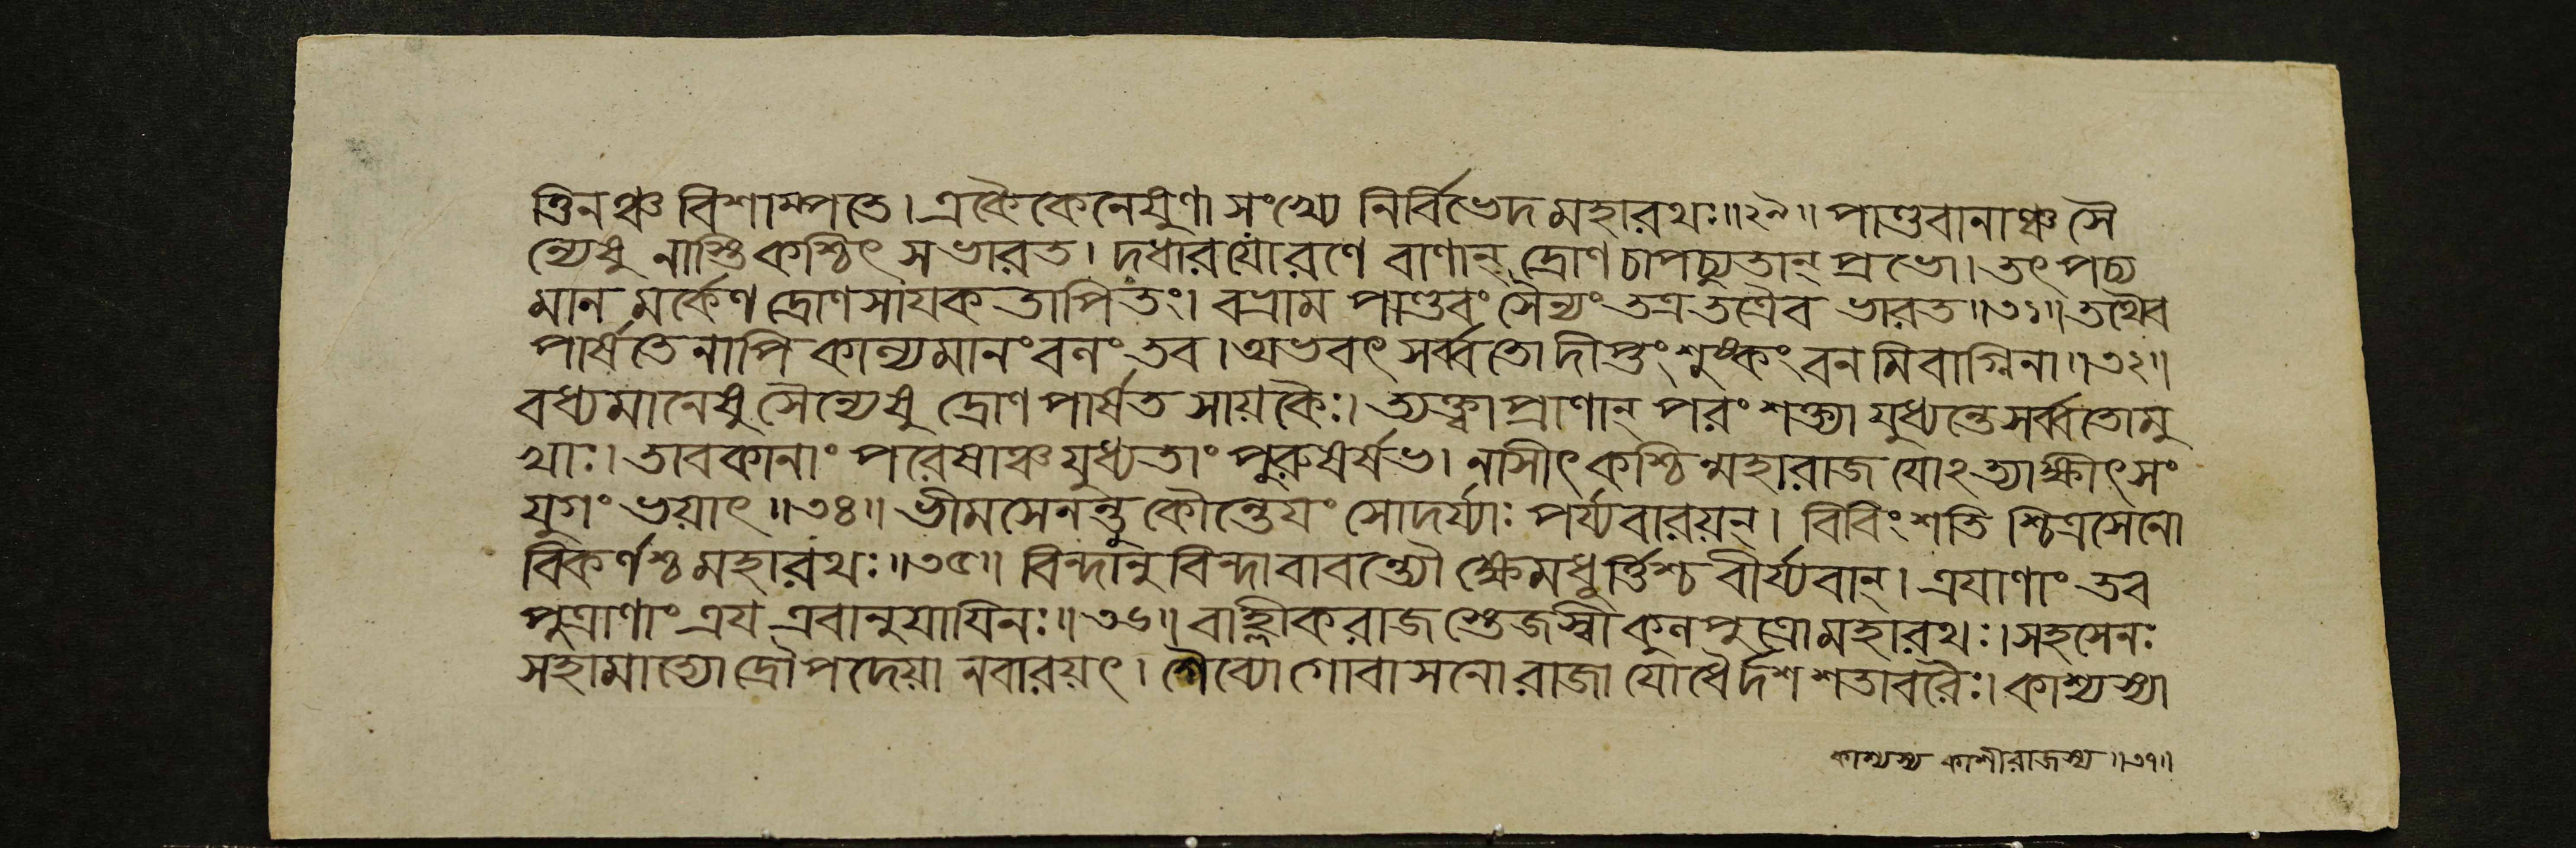 ত্তিনঞ্চ বিশাম্পতে। একৈকেনেষুণা সংখ্যে নির্বিভেদ মহারথঃ॥২৯॥ পাণ্ডবানাঞ্চ সৈ
ন্যেষু নাস্তি কশ্চিৎ স ভারত। দধার যো রণে বাণান্ দ্রোণচাপচ্যুতান্ প্রভো। তৎ পচ্য
মান মর্কেণ দ্রোণসায়ক তাপিতং। বভ্রাম পাণ্ডবং সৈন্যং তত্র তত্রৈব ভারত॥৩১॥ তথৈব
পার্ষতেনাপি কাল্যমানং বনং তব। অভবৎ সর্ব্বতো দীপ্তং শুষ্কং বনমিবাগ্নিনা॥৩২॥
বধ্যমানেষু সৈন্যেষু দ্রোণ পার্ষত সায়কৈঃ। ত্যক্ত্বা প্রাণান্ পরং শক্ত্যা যুধ্যন্তে সর্ব্বতোমু
খাঃ। তাবকানাং পরেষাঞ্চ যুধ্যতাং পুরুষর্ষভ। নাসীৎ কশ্চিন্মহারাজ যোঽত্যাক্ষীৎ সং
যুগং ভয়াৎ॥৩৪॥ ভীমসেনন্তু কৌন্তেয়ং সোদর্য্যাঃ পর্য্যবারয়ন্। বিবিংশতি শ্চিত্রসেনো
বিকর্ণশ্চ মহারথঃ॥৩৫॥ বিন্দানুবিন্দাবাবন্ত্যৌ ক্ষেমধূর্ত্তিশ্চ বীর্য্যবান্। ত্রয়াণাং তব
পুত্রাণাং ত্রয় এবানুযায়িনঃ॥৩৬॥ বাহ্লীকরাজস্তেজস্বী কুলপুত্রো মহারথঃ। সহসেনঃ
সহামাত্যো দ্রৌপদেয়া নবারয়ৎ। শৈব্যো গোবাসনো রাজা যোধৈর্দশ শতাবরৈঃ। কাশ্যস্যা
কাশ্যস্য কাশীরাজস্য॥৩৭॥